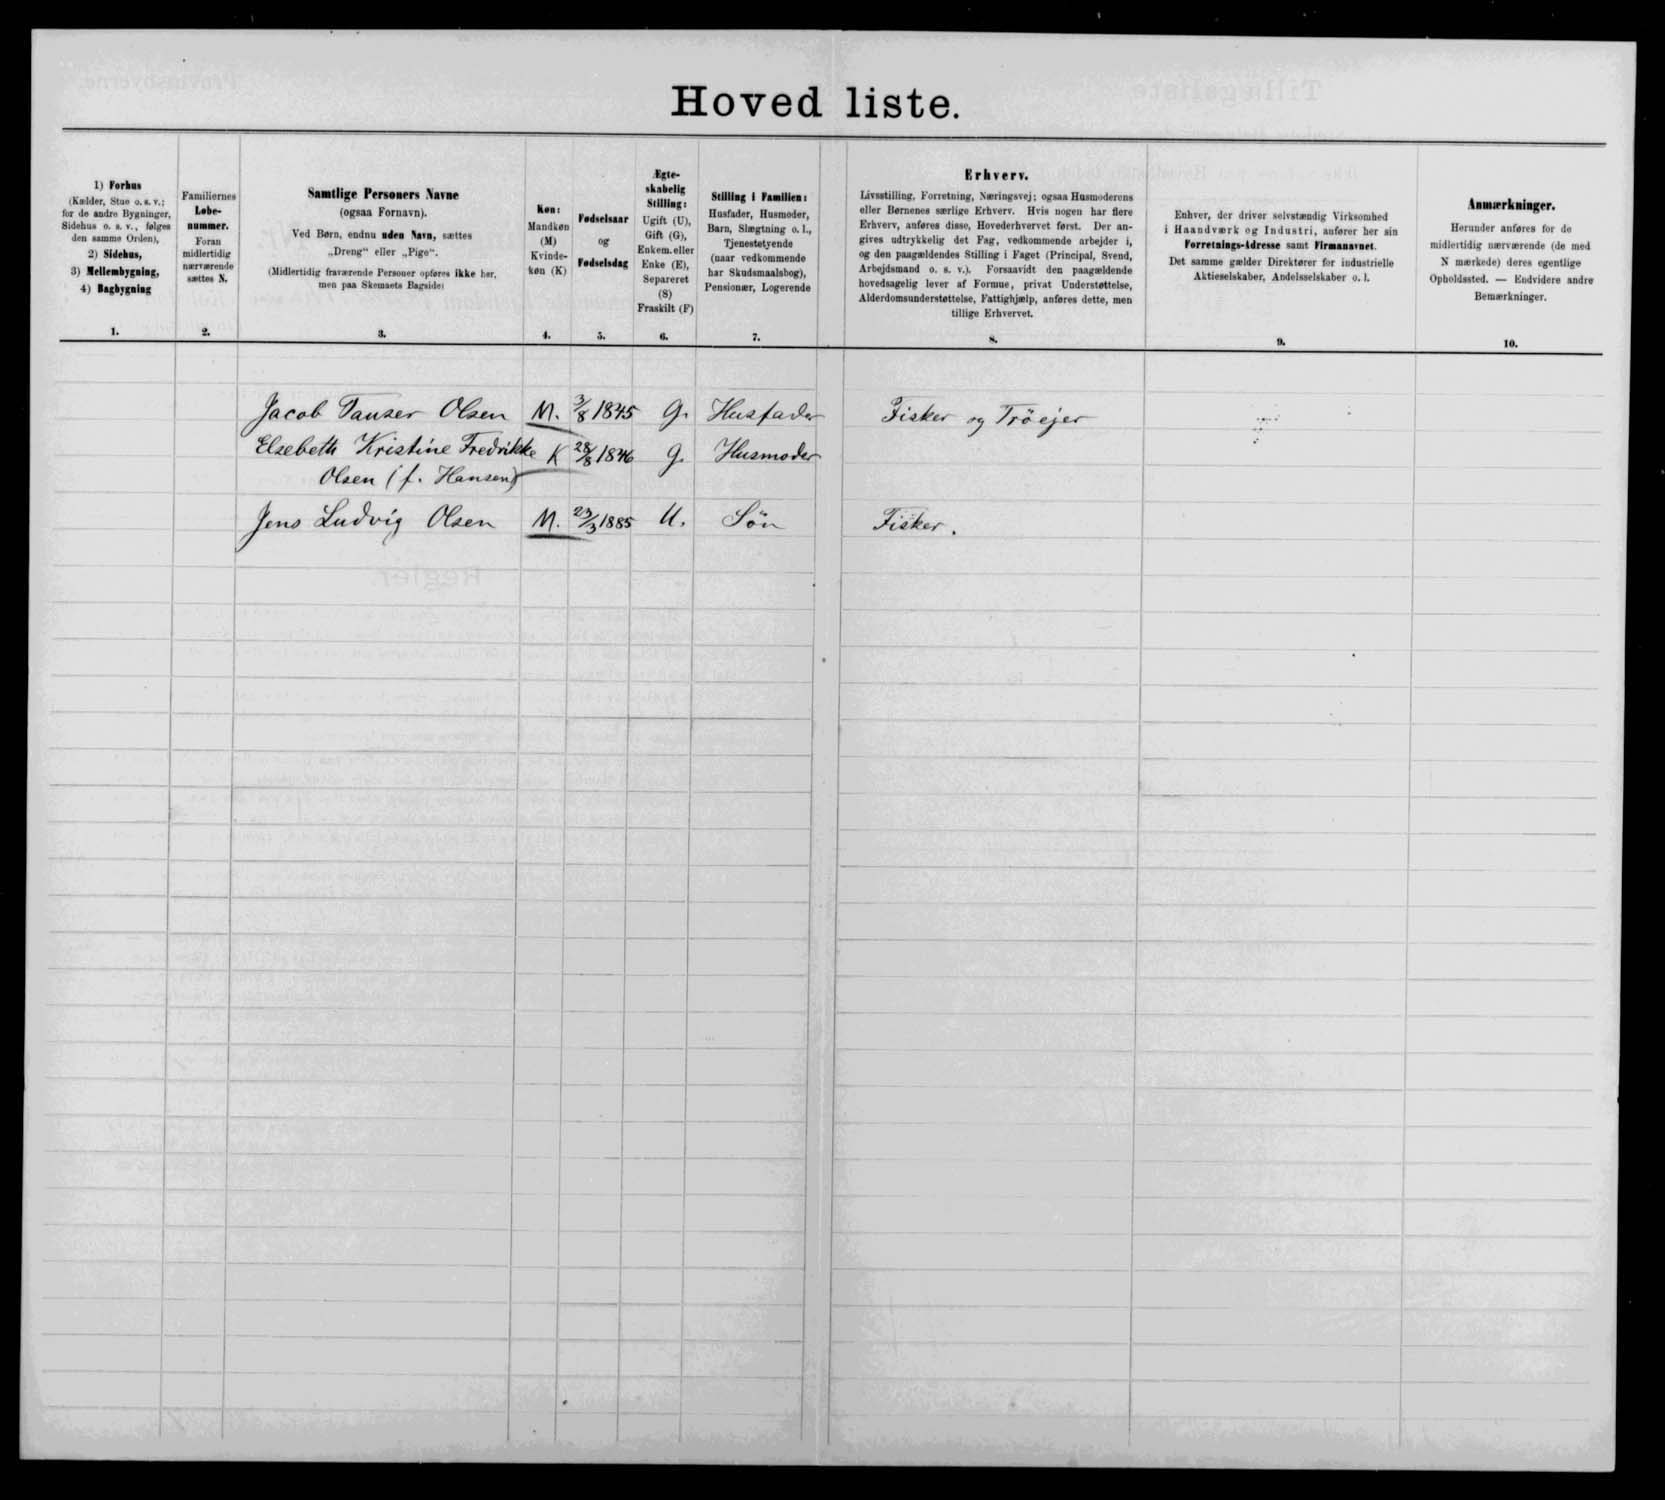 Hoved liste.
1) Forhus
(Kælder, Stue o. s. v.;
for de andre Bygninger,
Sidehus o. s. v., følges
den samme Orden),
2) Sidehus,
3) Mellembygning,
4) Bagbygning
1.
Familiernes
Løbe-
nummer.
Foran
midlertidig
nærværende
sættes N.
2.
Samtlige Personers Navne
(ogsaa Fornavn).
Ved Børn, endnu uden Navn, sættes
„Dreng“ eller „Pige“.
(Midlertidig fraværende Personer opføres ikke her,
men paa Skemaets Bagside)
3.
Køn:
Mandkøn
(M)
Kvinde-
køn (K)
4.
Fødselsaar
og
Fødselsdag
5.
Ægte-
skabelig
Stilling:
Ugift (U),
Gift (G),
Enkem. eller
Enke (E),
Separeret
(S)
Fraskilt (F)
6.
Stilling i Familien:
Husfader, Husmoder,
Barn, Slægtning o. l.,
Tjenestetyende
(naar vedkommende
har Skudsmaalsbog),
Pensionær, Logerende
7.
Erhverv.
Livsstilling, Forretning, Næringsvej; ogsaa Husmoderens
eller Børnenes særlige Erhverv. Hvis nogen har flere
Erhverv, anføres disse, Hovederhvervet først. Der an-
gives udtrykkelig det Fag, vedkommende arbejder i,
og den paagældendes Stilling i Faget (Principal, Svend,
Arbejdsmand o. s. v.). Forsaavidt den paagældende
hovedsagelig lever af Formue, privat Understøttelse,
Alderdomsunderstøttelse, Fattighjælp, anføres dette, men
tillige Erhvervet.
8.
Enhver, der driver selvstændig Virksomhed
i Haandværk og Industri, anfører her sin
Forretnings-Adresse samt Firmanavnet.
Det samme gælder Direktører for industrielle
Aktieselskaber, Andelsselskaber o. l.
9.
Anmærkninger.
Herunder anføres for de
midlertidig nærværende (de med
N mærkede) deres egentlige
Opholdssted. — Endvidere andre
Bemærkninger.
10.
Jacob Tauser Olsen M. 3/8 1845 G. Husfader Fisker og Tröejer
Elsebeth Kristine Fredrikke K 28/8 1846 G. Husmoder
Olsen (f. Hansen)
Jens Ludvig Olsen M. 23/3 1885 U. Sön Fisker.